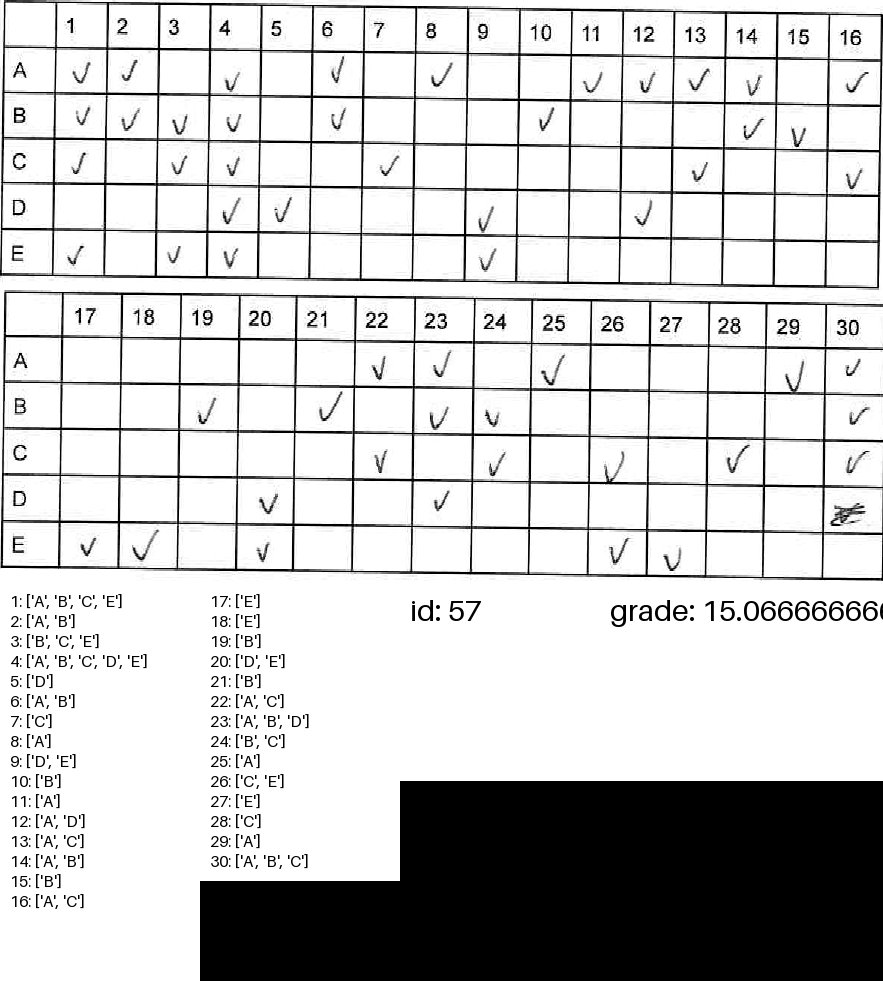 1 2 3 4 5 6 7 8 9 10 11 12 13 14 15 16
A ✓ ✓ ✓ ✓ ✓ ✓ ✓ ✓ ✓ ✓
B ✓ ✓ ✓ ✓ ✓ ✓ ✓ ✓
C ✓ ✓ ✓ ✓ ✓ ✓
D ✓ ✓ ✓ ✓
E ✓ ✓ ✓ ✓
17 18 19 20 21 22 23 24 25 26 27 28 29 30
A ✓ ✓ ✓ ✓ ✓
B ✓ ✓ ✓ ✓ ✓
C ✓ ✓ ✓ ✓ ✓
D ✓ ✓
E ✓ ✓ ✓ ✓ ✓
1: ['A', 'B', 'C', 'E']
2: ['A', 'B']
3: ['B', 'C', 'E']
4: ['A', 'B', 'C', 'D', 'E']
5: ['D']
6: ['A', 'B']
7: ['C']
8: ['A']
9: ['D', 'E']
10: ['B']
11: ['A']
12: ['A', 'D']
13: ['A', 'C']
14: ['A', 'B']
15: ['B']
16: ['A', 'C']
17: ['E']
18: ['E']
19: ['B']
20: ['D', 'E']
21: ['B']
22: ['A', 'C']
23: ['A', 'B', 'D']
24: ['B', 'C']
25: ['A']
26: ['C', 'E']
27: ['E']
28: ['C']
29: ['A']
30: ['A', 'B', 'C']
id: 57
grade: 15.066666666